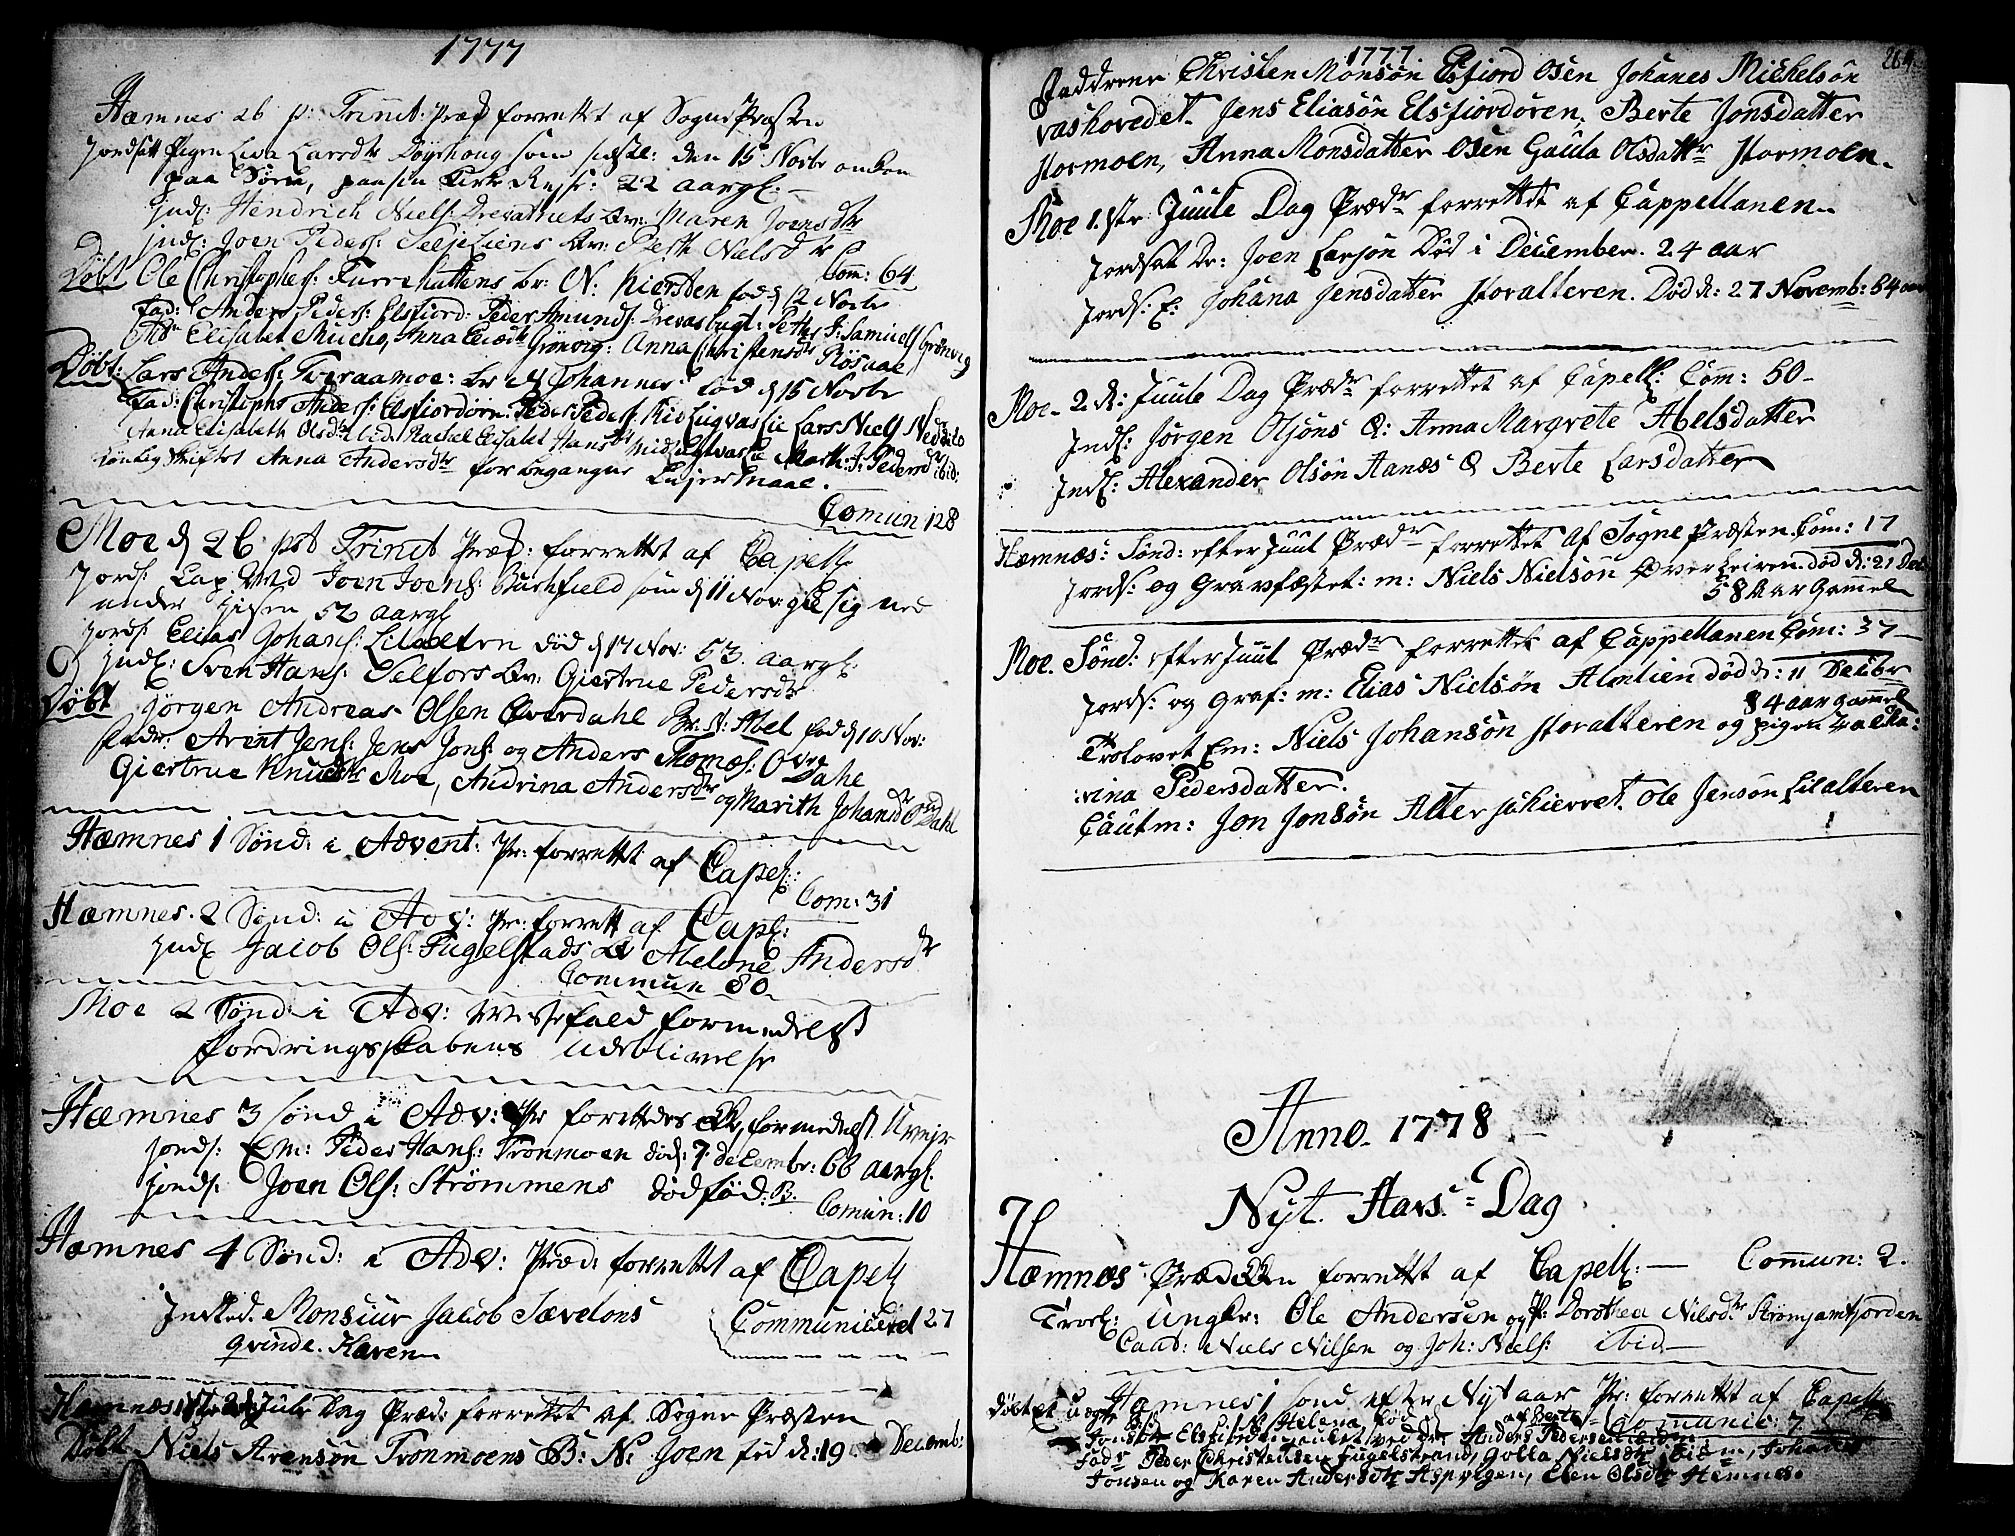 1777
Hæmnes 26 p: Trinit: Præd forrettet af Sogne Præsten
Jordsatt Pigen Liva Larsdtr Døyshoug som sidstl: den 15 Novbr omkom
paa Søen, paa sin Kirke Reyse: 22 aargl:
Indl: Hendrich Niels: Drevatnets Qv: Maren Joensdtr
Indl: Joen Peders: Qv: Berth Nielsdtr
Com: 64
Døbt Ole Christophs: Furrehattens br: N: Kiersten fød d 12 Novbr
Fad: Anders Peders: Elsfiord: Peder Amunds: Drevasbugt: Samuels Grønvig
Elisabet Muchs, Anna Grønvig: Anna Christensdtr Røsaae
Døbt: Lars Anders: Tveraamoe: br N Johannes fød d 15 Novbr
Fad: Christophr Anders: Elsfiordøren: Peder Peders: Lars Niels
Anna Elisabeth Olsdtr ibid: Rachel Elisabet Hansdtr Marth: Pedersdtr ibid:
Anna Andersdtr for begangne Leyermaal.
Comun 128
Moe d 26 pst Trinit Præd: forrettet af Capell
Jords: Lap Md Joen Joens: Bushfield som d 11 Nov: gik sig ned
under Jisen 52 aargl
Jords: Elias Johans: Lilaelten død d 17 Nov: 53 aargl:
Indl: Sven Hans: Selfors Qv: Giertrue Pedersdtr
Døbt Jørgen Andreas Olsen Overdahl Br: N: Abel fød d 10 Nov:
Fadr: Arent Jens: Jens Jons: og Anders Thomæs: Ovrdahl
Giertrue Knudsdtr Moe, Andrina Andersdtr og Marith Johansdtr Dahl
Hæmnes 1 Sønd: i Advent: Pr: forrettet af Capel:
Com: 31
Hæmnes. 2 Sønd: i Adv: Pr: forrett af Capl:
Indl Jacob Ols: Fugelstads Qv Abelone Andersdtr
Commun 80
Moe 2 Sønd i Adv: Messefald formedelst
fordringsskabens Udeblivelse
Hæmnes 3 sønd i Adv: Pr forrettes ikke, formedelst Uvejr
Jords: Em: Peder Hans: Tronmoen død: 7 decembr: 66 aargl:
Jords: Joen Ols: Strømmens dødfød: B
Comun: 10
Hæmnes 4 Sønd: i Adv: Præd: forrettet af Capell
Indled. Monsiur Jacob Sævelons
qvinde. Karen
Communicerel 27
Hæmnes 1ste Jule Dag Præd: forrettet af Sogne Præsten
Døbt Niels Arensøn Tronmoens B: N: Joen fød d: 19 Decemb:
1777.
264.
Faddrene Christen Monsøn Elsfiord Osen Johanes Michelsøn
vashovedet. Jens Eliasøn Elsfiordøren. Berte Jonsdatter
Stormoen, Anna Monsdatter Osen Gaida Olsdattr Stormoen.
Moe 1.ste Juule Dag Prædn forrettet af Cappellanen
Jordsat Dr: Joen Larsøn Død i December. 24 aar
Jords: E: Johana Jensdatter Storalteren. Død d: 27 Novemb: 84 aar
Moe. 2.d: Juule Dag Prædn forrettet af Capell: Com: 50
Indl: Jørgen Olsøns Q: Anna Margrete Abelsdatter
Indl: Alexander Olsøn Aanæs Q Berte Larsdatter
Hæmnæs: Sønd: efter Juul Prædn forrettet Af Sogne Præsten Com: 17
Jords: og Gravfæstet: m: Niels Nielsøn Overleiren død d: 21 Dec
58 Aar Gammel
Moe. Sønd: efter Juul Prædn forrettet af Cappellanen Com: 37
Jords: og Graf: m: Elias Nielsøn Almlien død d: 11 Decbr
84 aar gammel
Trolovet Em: Niels Johansøn Storalteren og pigen Catha:
:rina Pedersdatter.
Cautm: Jon Jonsøn Alterskierret. Ole Jensøn Lilalteren
Anno. 1778
Nyt. Aars. Dag
Hæmnæs Prædiken forrettet af Capell: — Commun: 2.
Trol: Ungkr: Ole Andersen og P: Dorothea Nilsdtr Strømjamtfjorden
Caut: Niels Nilsen og Joh: Niels: ibid
Hæmnes 1 sønd efter Nyt aar Pr: forrettet af Capell
Døbt et uægte B: N Helena fød af Berte Comunic: 7
Jonsdtr Elsfiorden Anders Pedersen
Fadr Peder Christensen Fugelstrand, Golla Nielsdtr Johanes
Jonsen og Karen Andersdtr Aspvigen, Elen Olsdtr Hæmnes.